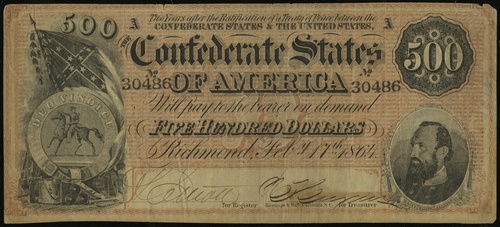 Two Years after the Ratification of a Treaty of Peace between the
CONFEDERATE STATES & THE UNITED STATES,
500 A A
THE Confederate States 500
No 30486 OF AMERICA No 30486
Will pay to the bearer on demand
FIVE HUNDRED DOLLARS
Richmond, Feby 17th 1864.
DEO VINDICE
for Register for Treasurer